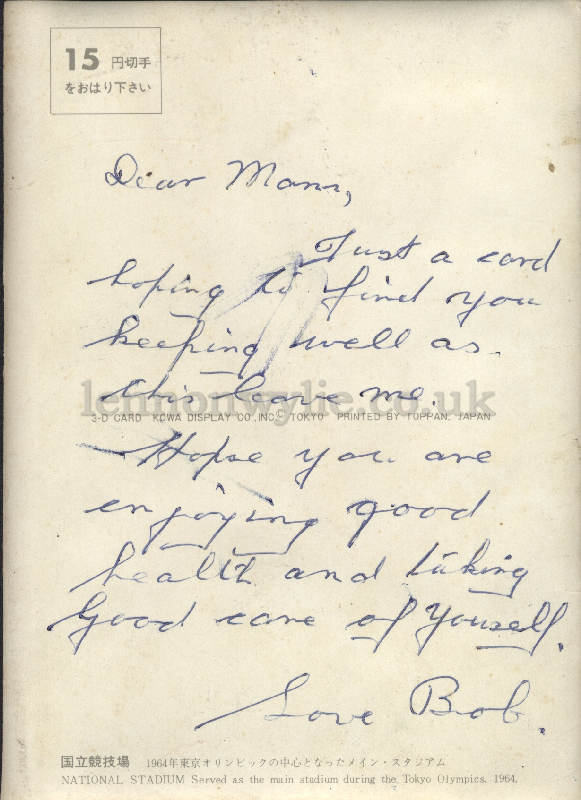 15 円切手
をおはり下さい
Dear Mam,
Just a card
hoping to find you
keeping well as
this leave me.
lennonwylie.co.uk
3-D CARD KOWA DISPLAY CO.,INC.© TOKYO PRINTED BY TOPPAN, JAPAN
Hope you are
enjoying good
health and taking
Good care of Youself.
Love Bob.
国立競技場 1964年東京オリンピックの中心となったメイン・スタジアム
NATIONAL STADIUM Served as the main stadium during the Tokyo Olympics, 1964.